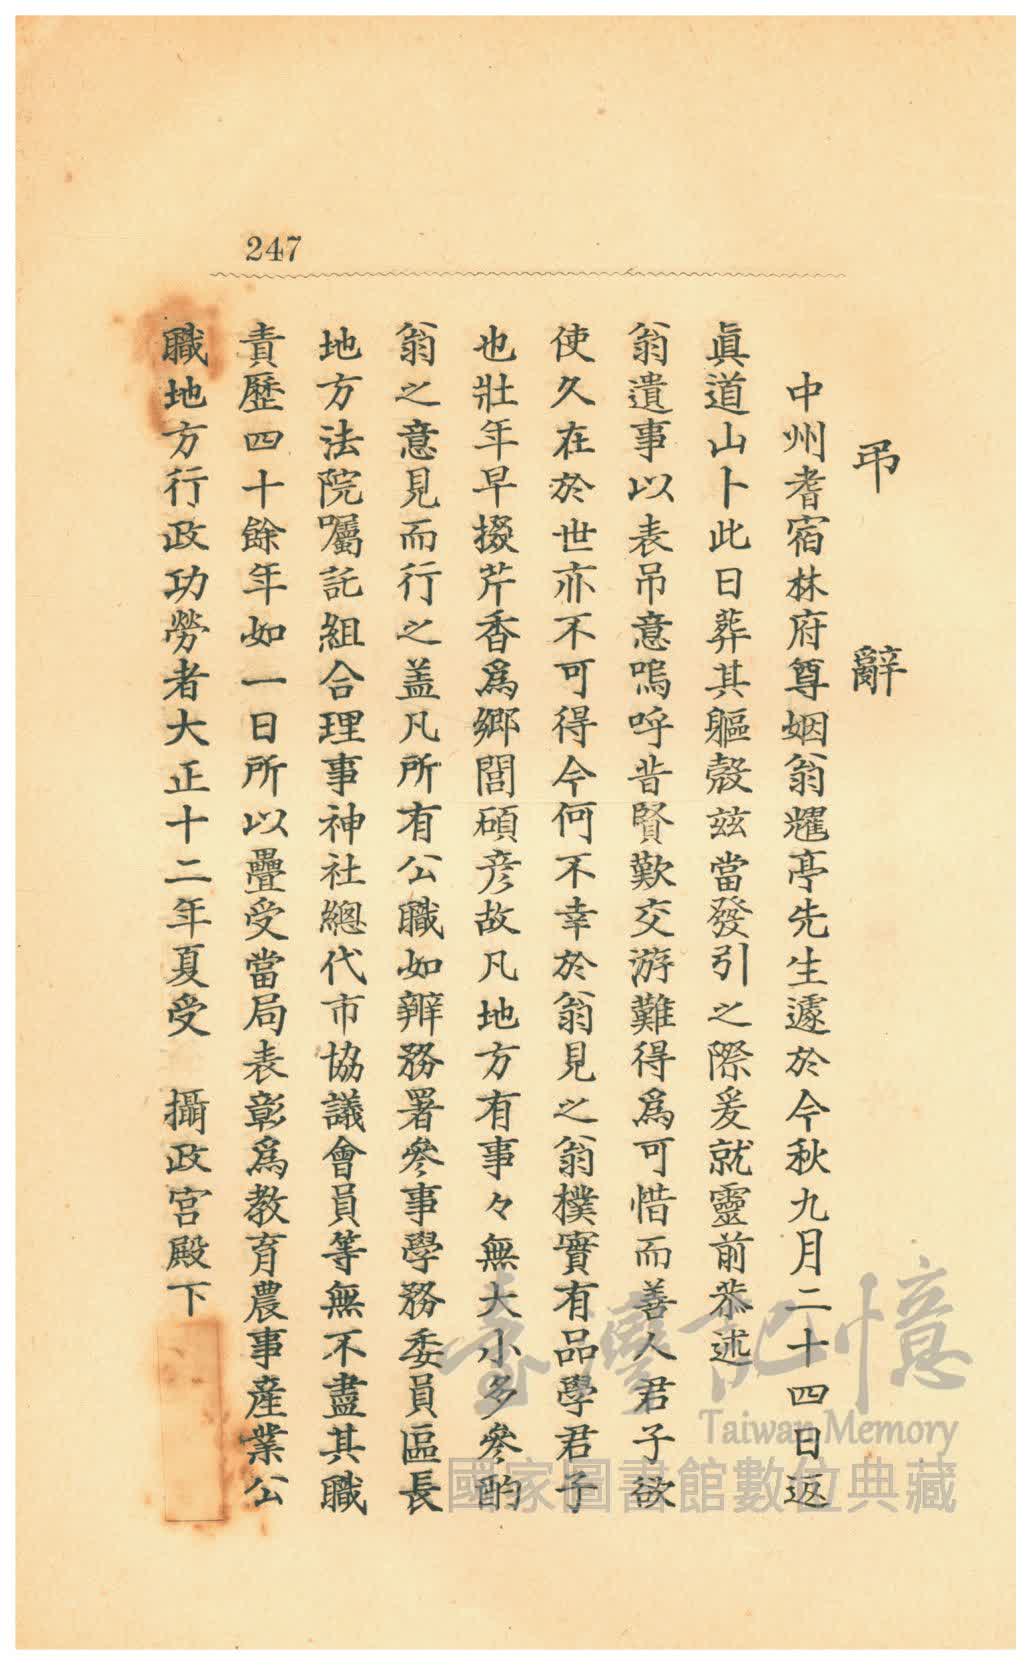 247
弔辭
中州耆宿林府尊姻翁燿亭先生遽於今秋九月二十四日返
眞道山卜此日葬其軀殼茲當發引之際爰就靈前恭述
翁遺事以表吊意嗚呼昔賢歎交游難得爲可惜而善人君子欲
使久在於世亦不可得今何不幸於翁見之翁樸實有品學君子
也壯年早掇芹香爲鄉閭碩彦故凡地方有事々無大小多參酌
翁之意見而行之盖凡所有公職如辦務署參事學務委員區長
地方法院囑託組合理事神社總代市協議會員等無不盡其職
責歷四十餘年如一日所以疊受當局表彰爲教育農事產業公
職地方行政功勞者大正十二年夏受　攝政宮殿下
臺灣記憶
Taiwan Memory
國家圖書館數位典藏